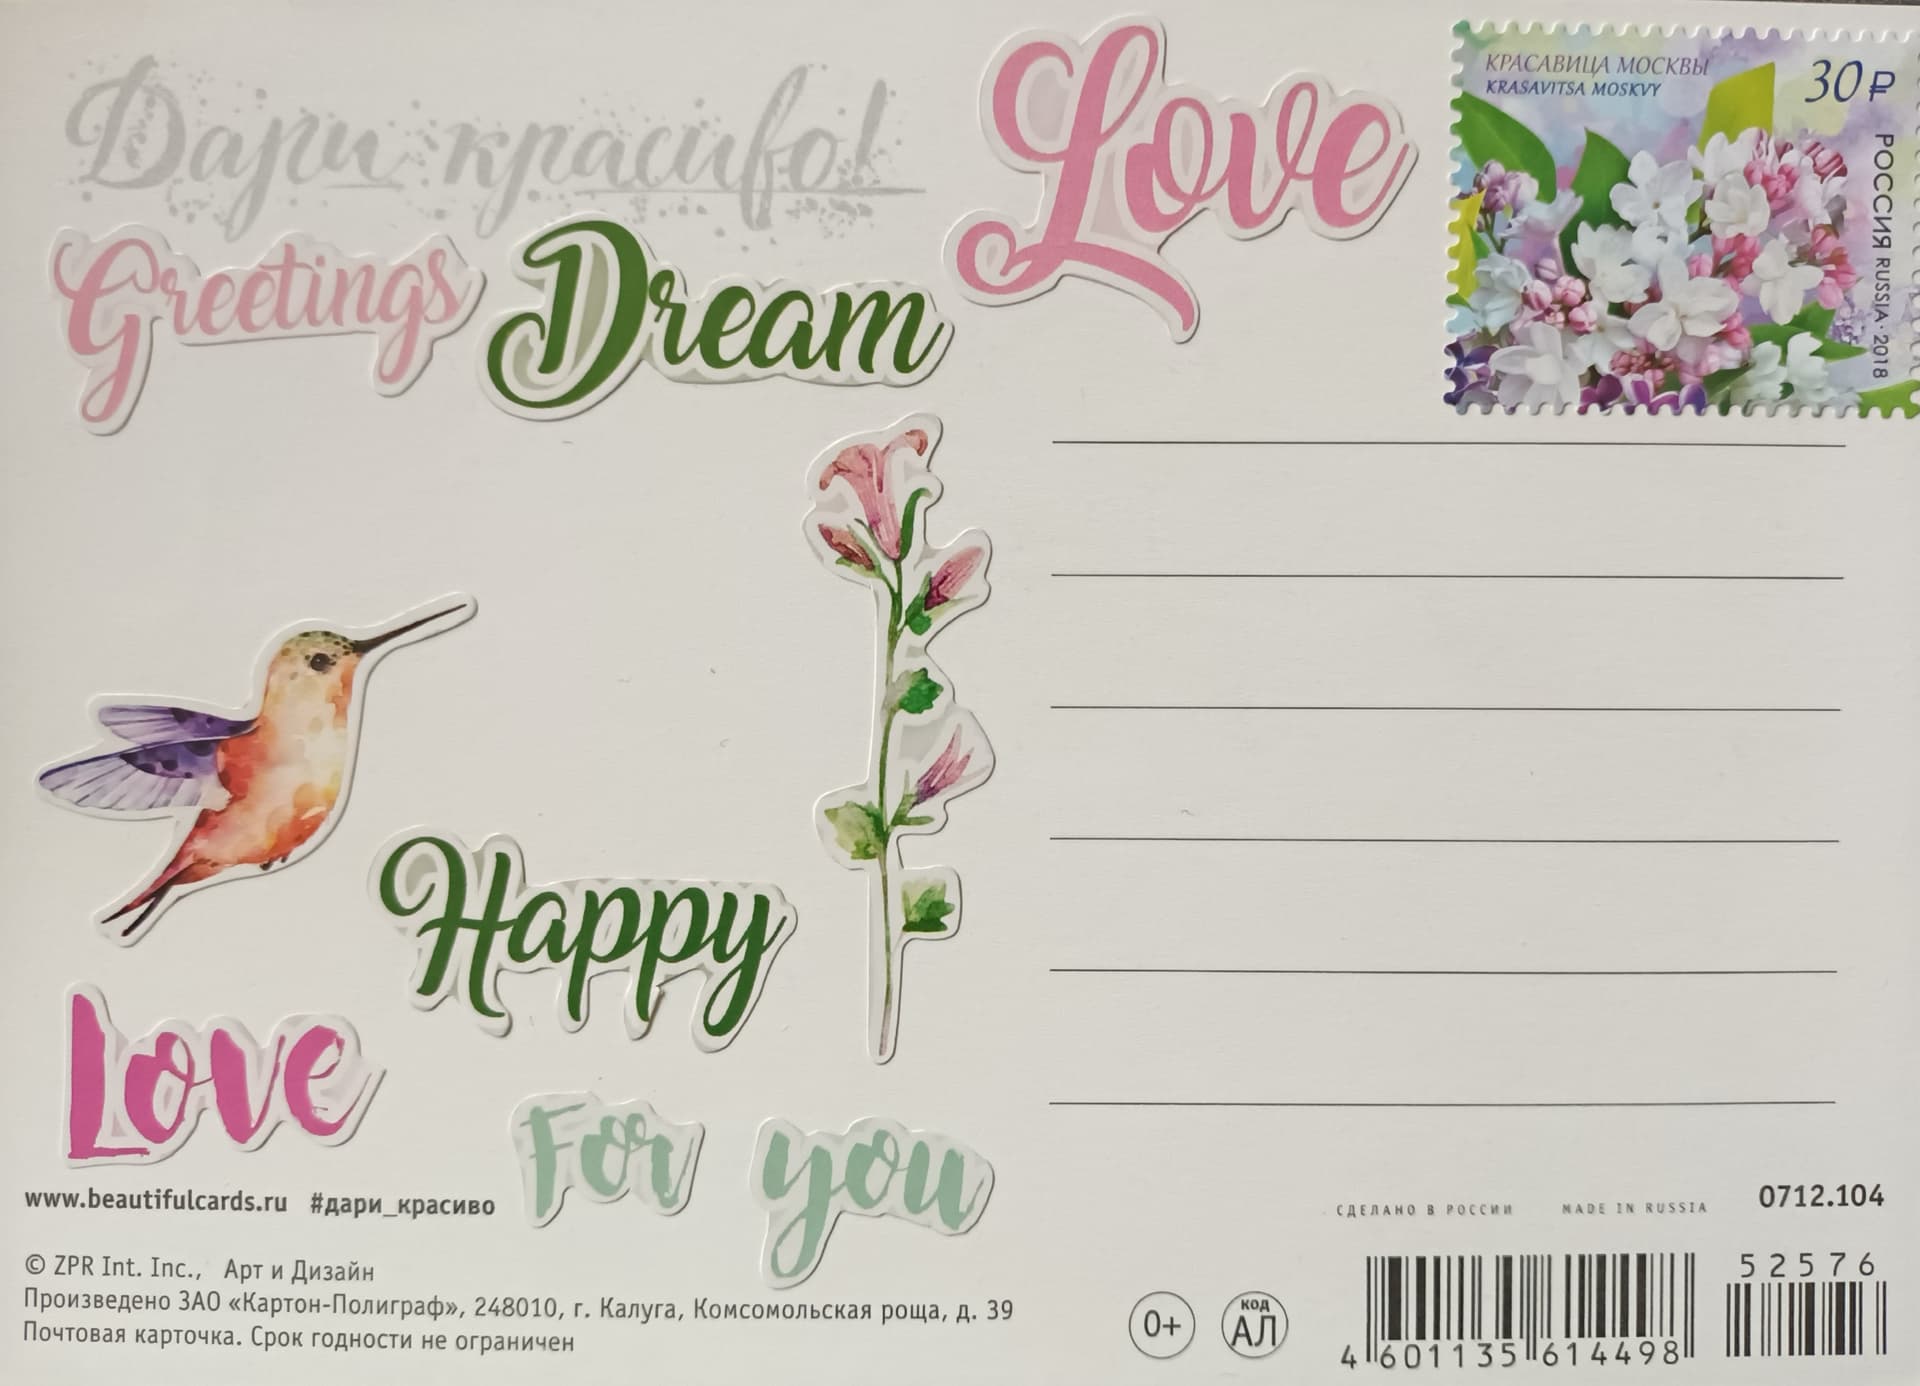 Дари красиво!
Love
КРАСАВИЦА МОСКВЫ
KRASAVITSA MOSKVY
30 ₽
РОССИЯ RUSSIA · 2018
Greetings
Dream
Happy
Love
For you
www.beautifulcards.ru #дари_красиво
СДЕЛАНО В РОССИИ MADE IN RUSSIA
0712.104
© ZPR Int. Inc., Арт и Дизайн
Произведено ЗАО «Картон-Полиграф», 248010, г. Калуга, Комсомольская роща, д. 39
Почтовая карточка. Срок годности не ограничен
0+
код
АЛ
52576
4 601135 614498